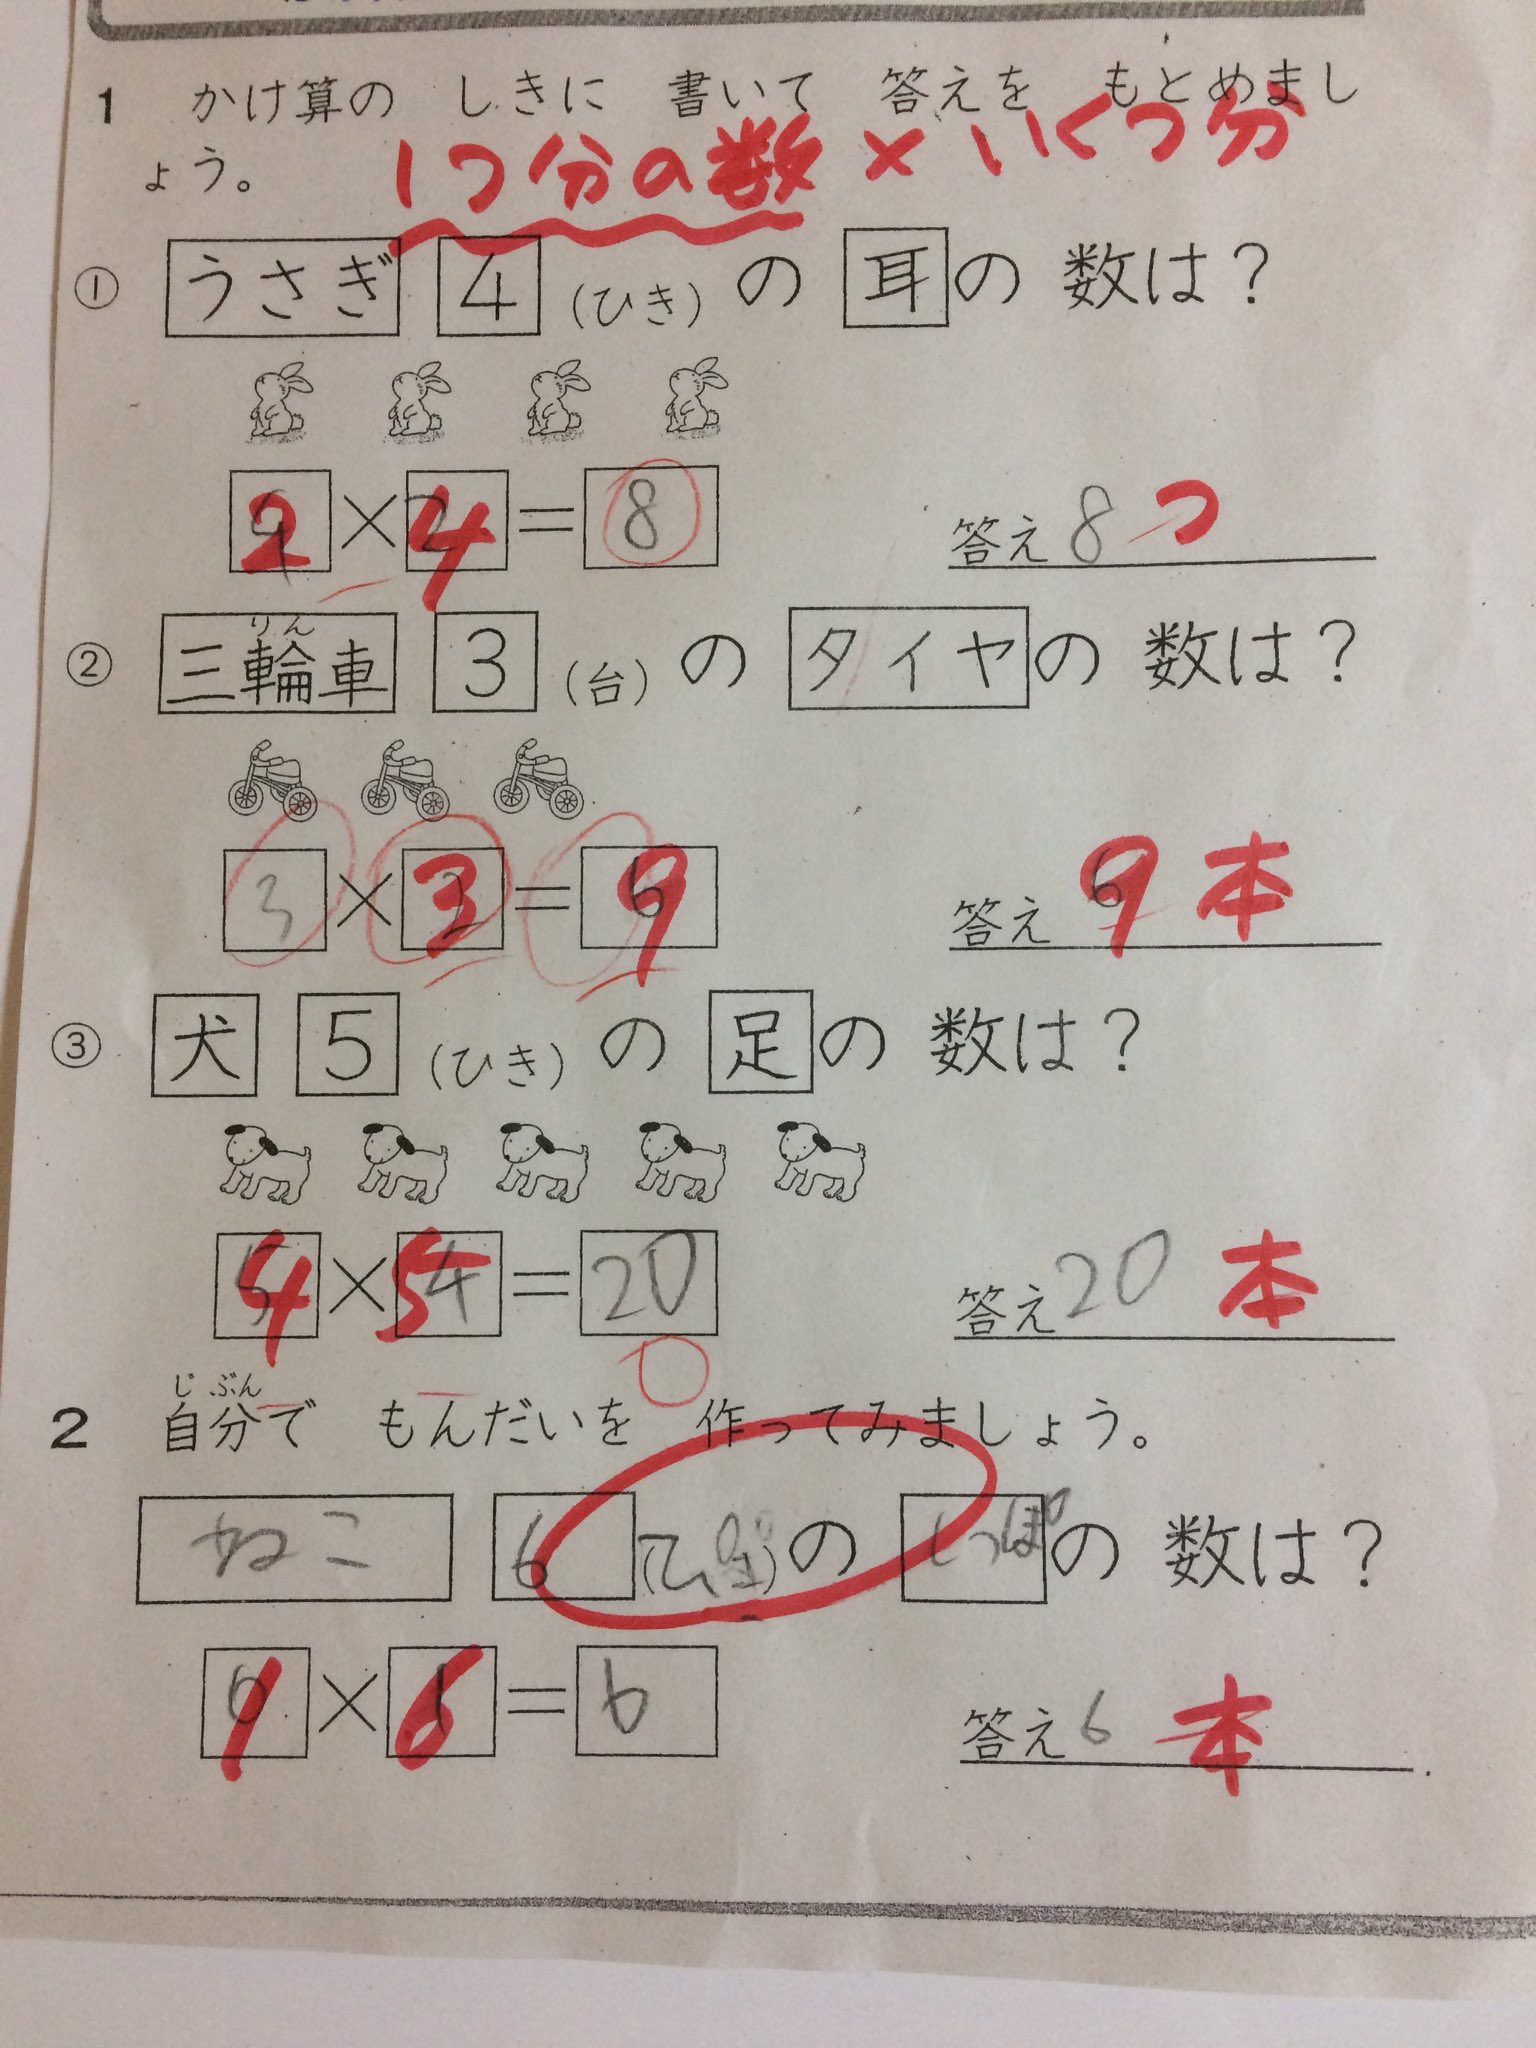 1 かけ算の しきに 書いて 答えを もとめまし
ょう。
1つ分の数×いくつ分
① うさぎ 4 (ひき) の 耳の 数は?
2×4=8 答え 8つ
② 三輪車 3 (台) の タイヤの 数は?
りん
3×3=9 答え 9本
③ 犬 5 (ひき) の 足の 数は?
4×5=20 答え 20本
2 自分で もんだいを 作ってみましょう。
じぶん
ねこ 6 (ひき) の しっぽの 数は?
1×6=6 答え 6本